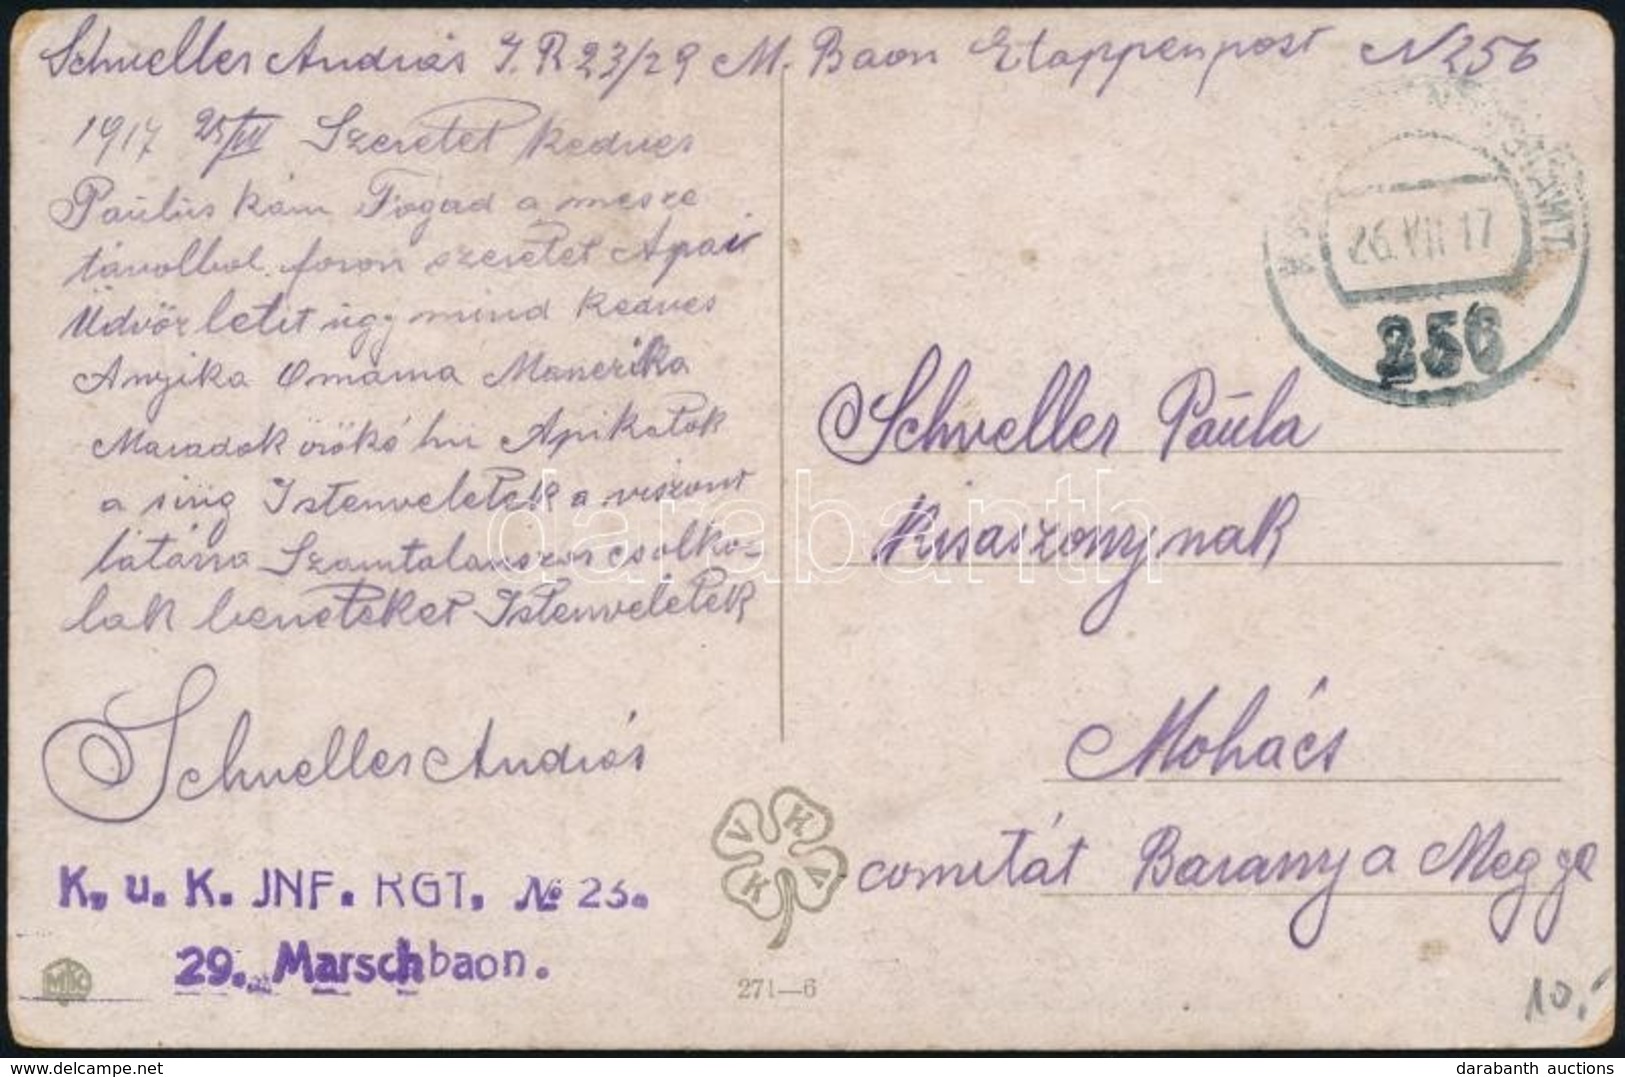 Schneller András I. R 23/29 M. Baon Etappenpost N 256
1917 25/VII Szeretet kedves
Paulus kám Fogad a messe
távolbol foron szeretet Apai
Üdvöz letit úgy mind kedves
Anyika Omama Manerika
Maradok örökö hü Apikatok
a sirig Istenveletek a viszont
látásra Szamtalanszor csolko-
lak beneteket Istenveletek
Schneller András
K. u. K. JNF. RGT. № 23.
29. Marschbaon.
MK
271—6
V H V K
26. VII 17
256
Schneller Paüla
Kisaszonynak
Mohács
comitát Baranya Megye
10,-
darabanth
delcampe.net
darabanth auctions